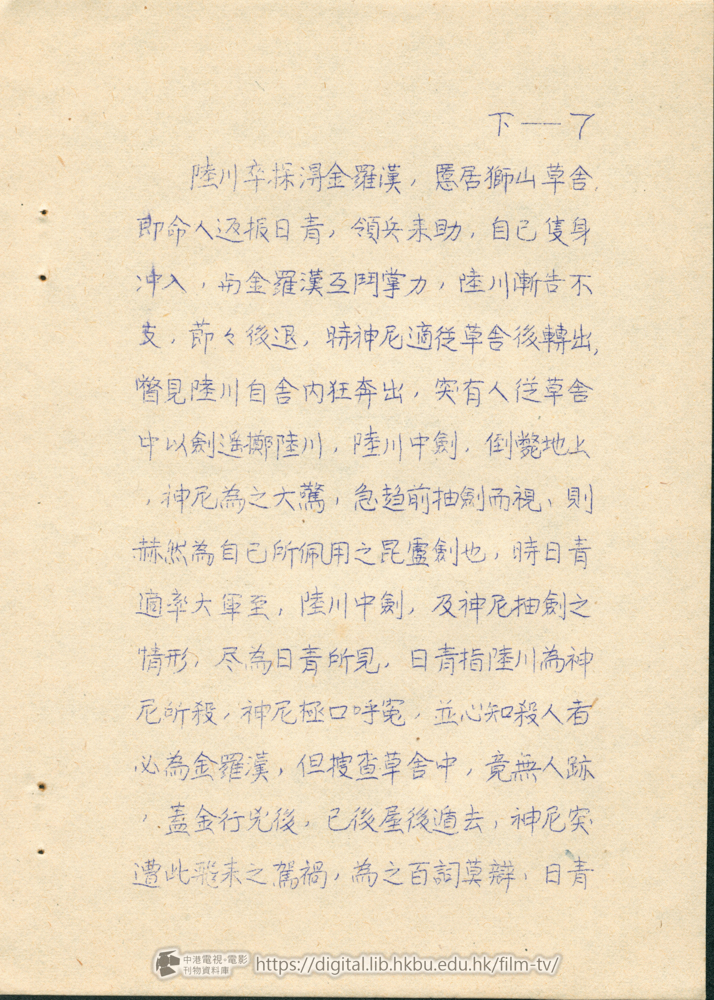 下——7
陸川卒探得金羅漢，隱居獅山草舍，
即命人返报日青，領兵來助，自己隻身
冲入，与金羅漢互鬥掌力，陸川漸告不
支，節々後退，時神尼適從草舍後轉出，
瞥見陸川自舍內狂奔出，突有人從草舍
中以劍遥擲陸川，陸川中劍，倒斃地上
，神尼為之大驚，急趋前抽劍而視，則
赫然為自己所佩用之昆盧劍也，時日青
適率大軍至，陸川中劍，及神尼抽劍之
情形，尽為日青所見，日青指陸川為神
尼所殺，神尼極口呼冤，並心知殺人者
必為金羅漢，但搜查草舍中，竟無人跡
，蓋金行兇後，已後屋後遁去，神尼突
遭此飛來之駕禍，為之百詞莫辯，日青
中港電視·電影
刊物資料庫
https://digital.lib.hkbu.edu.hk/film-tv/